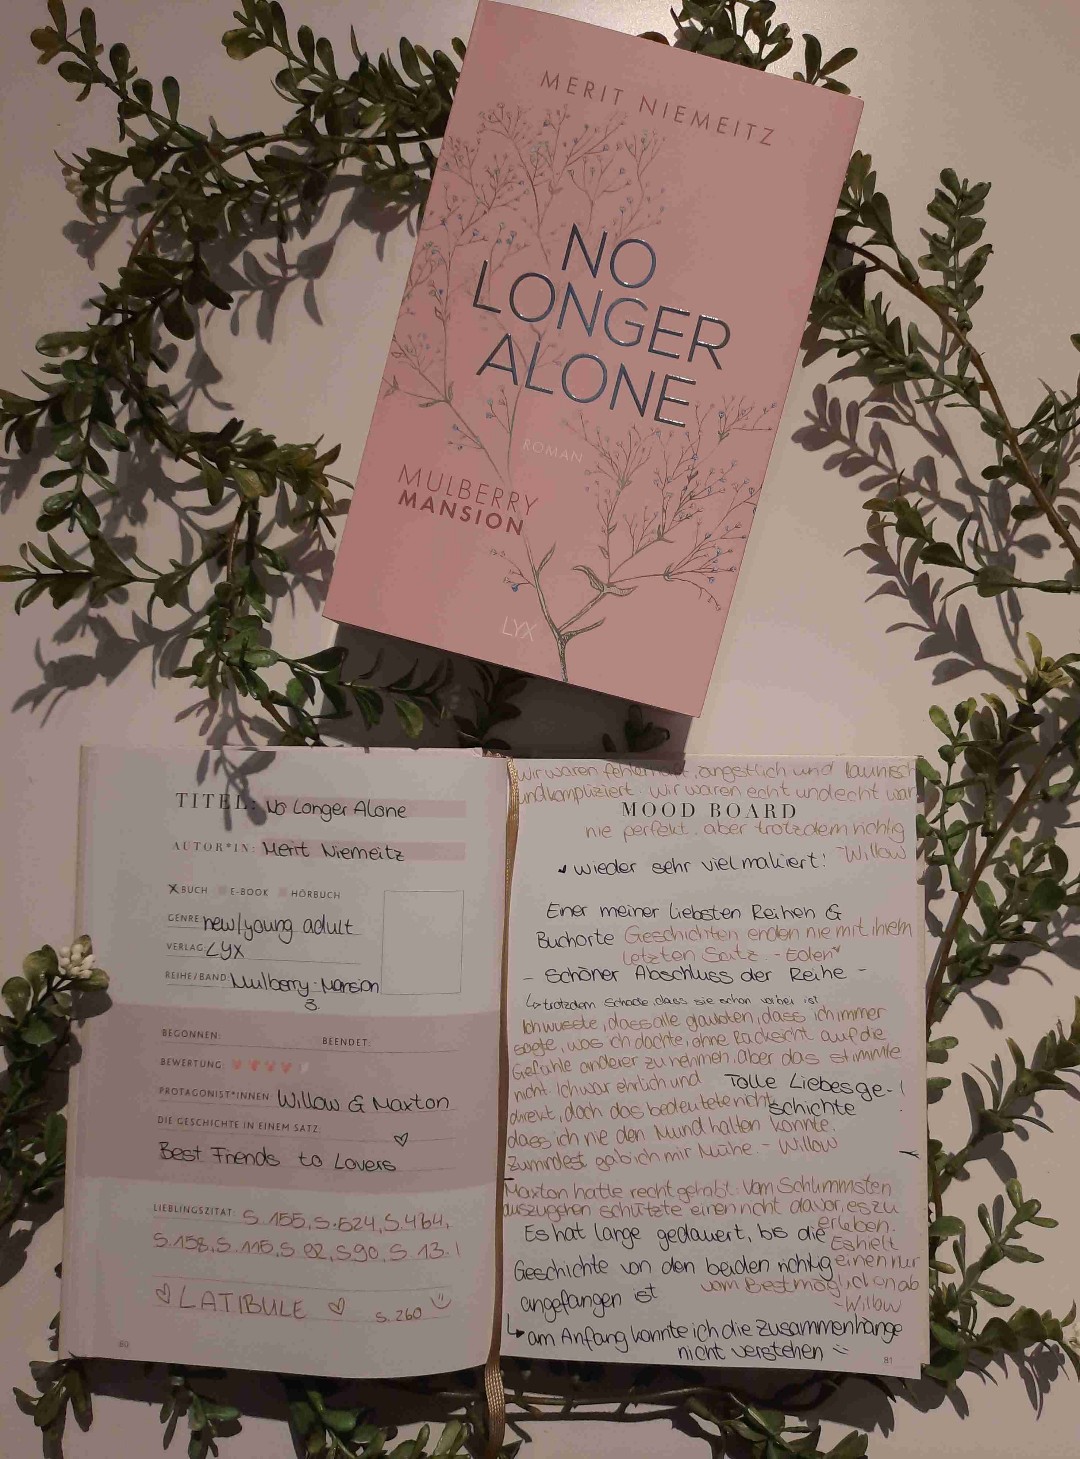 MERIT NIEMEITZ
NO
LONGER
ALONE
ROMAN
MULBERRY
MANSION
LYX
TITEL: No Longer Alone
AUTOR*IN: Merit Niemeitz
X BUCH E-BOOK HÖRBUCH
GENRE: new/young adult
VERLAG: LYX
REIHE/BAND: Mulberry-Mansion
3.
BEGONNEN: BEENDET:
BEWERTUNG:
PROTAGONIST*INNEN: Willow & Maxton
DIE GESCHICHTE IN EINEM SATZ:
Best Friends to Lovers
LIEBLINGSZITAT: S. 155, S. 524, S. 464,
S. 158, S. 115, S. 82, S. 90, S. 13 !
LATIBULE S. 260
80
wir waren fehlerhaft, ängstlich und launisch
und kompliziert. wir waren echt und echt war
MOOD BOARD
nie perfekt. aber trotzdem richtig
~Willow
wieder sehr viel makiert!
Einer meiner liebsten Reihen &
Buchorte
Geschichten enden nie mit ihrem
letzten Satz - Eden
- Schöner Abschluss der Reihe -
↳ trotzdem Schade, dass sie schon vorbei ist
Ich wusste, dass alle glaubten, dass ich immer
sagte, was ich dachte, ohne Rücksicht auf die
Gefühle anderer zu nehmen. aber das stimmte
nicht. Ich war ehrlich und
direkt, doch das bedeutete nicht,
dass ich nie den Mund halten konnte.
Zumindest gab ich mir Mühe. - Willow
Tolle Liebesge- !
schichte
Maxton hatte recht gehabt. Vom Schlimmsten
auszugehen schützte einen nicht davor, es zu
erleben.
Es hielt
einen nur
vom Bestmöglichen ab
~Willow
Es hat lange gedauert, bis die
Geschichte von den beiden richtig
angefangen ist
↳ am Anfang konnte ich die Zusammenhänge
nicht verstehen
81